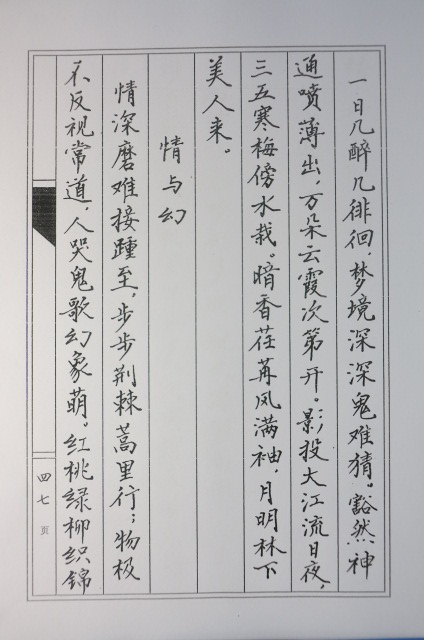 一日几醉几徘徊，梦境深深鬼难猜。豁然神
通喷薄出，万朵云霞次第开。影投大江流日夜，
三五寒梅傍水栽。暗香荏苒风满袖，月明林下
美人来。
情与幻
情深磨难接踵至，步步荆棘蒿里行；物极
不反视常道，人哭鬼歌幻象萌。红桃绿柳织锦
四七页